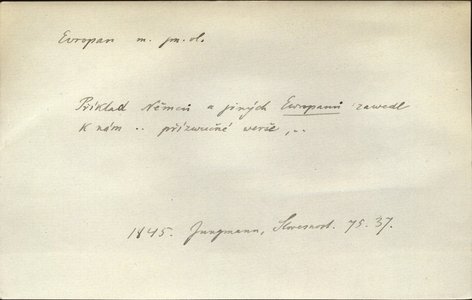 Evropan m. jm. ob.
Příklad Němců a jiných Europanů zavedl
k nám .. přízvučné verše, ..
1845. Jungmann, Slovesnost. 75. 37.